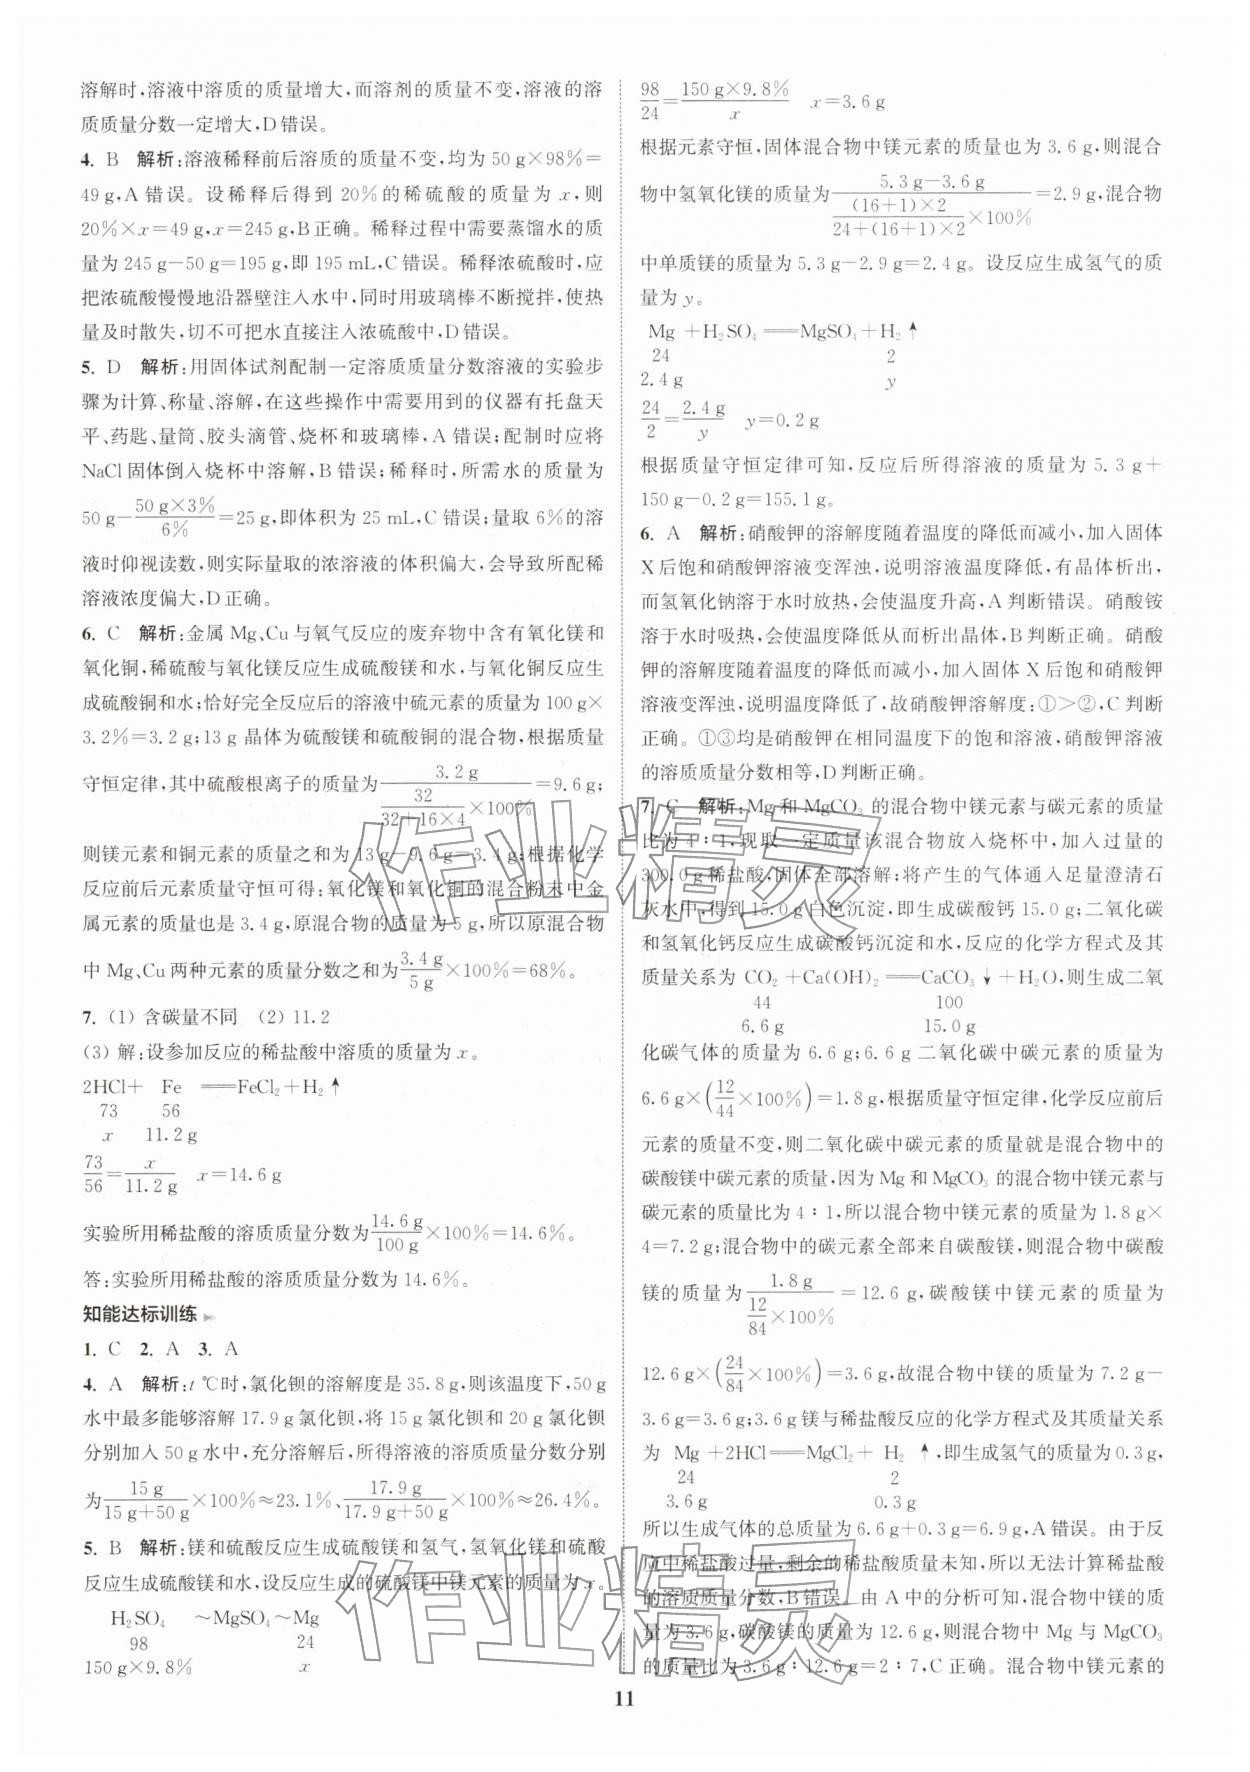 溶解时,溶液中溶质的质量增大,而溶剂的质量不变,溶液的溶
质质量分数一定增大,D错误。
4. B 解析:溶液稀释前后溶质的质量不变,均为50 g×98%=
49 g,A错误。设稀释后得到20%的稀硫酸的质量为x,则
20%×x=49 g,x=245 g,B正确。稀释过程中需要蒸馏水的质
量为245 g-50 g=195 g,即195 mL,C错误。稀释浓硫酸时,应
把浓硫酸慢慢地沿器壁注入水中,同时用玻璃棒不断搅拌,使热
量及时散失,切不可把水直接注入浓硫酸中,D错误。
5. D 解析:用固体试剂配制一定溶质质量分数溶液的实验步
骤为计算、称量、溶解,在这些操作中需要用到的仪器有托盘天
平、药匙、量筒、胶头滴管、烧杯和玻璃棒,A错误;配制时应将
NaCl固体倒入烧杯中溶解,B错误;稀释时,所需水的质量为
50 g-50 g×3%/6%=25 g,即体积为25 mL,C错误;量取6%的溶
液时仰视读数,则实际量取的浓溶液的体积偏大,会导致所配稀
溶液浓度偏大,D正确。
6. C 解析:金属Mg、Cu与氧气反应的废弃物中含有氧化镁和
氧化铜,稀硫酸与氧化镁反应生成硫酸镁和水,与氧化铜反应生
成硫酸铜和水;恰好完全反应后的溶液中硫元素的质量为100 g×
3.2%=3.2 g;13 g晶体为硫酸镁和硫酸铜的混合物,根据质量
守恒定律,其中硫酸根离子的质量为3.2 g/(32/(32+16×4)×100%)=9.6 g;
则镁元素和铜元素的质量之和为13 g-9.6 g=3.4 g;根据化学
反应前后元素质量守恒可得:氧化镁和氧化铜的混合粉末中金
属元素的质量也是3.4 g,原混合物的质量为5 g,所以原混合物
中Mg、Cu两种元素的质量分数之和为3.4 g/5 g×100%=68%。
7. (1) 含碳量不同 (2) 11.2
(3) 解:设参加反应的稀盐酸中溶质的质量为x。
2HCl+ Fe ══FeCl₂+H₂↑
73 56
x 11.2 g
73/56=x/11.2 g x=14.6 g
实验所用稀盐酸的溶质质量分数为14.6 g/100 g×100%=14.6%。
答:实验所用稀盐酸的溶质质量分数为14.6%。
知能达标训练
1. C 2. A 3. A
4. A 解析:t ℃时,氯化钡的溶解度是35.8 g,则该温度下,50 g
水中最多能够溶解17.9 g氯化钡,将15 g氯化钡和20 g氯化钡
分别加入50 g水中,充分溶解后,所得溶液的溶质质量分数分别
为15 g/(15 g+50 g)×100%≈23.1%、17.9 g/(17.9 g+50 g)×100%≈26.4%。
5. B 解析:镁和硫酸反应生成硫酸镁和氢气,氢氧化镁和硫酸
反应生成硫酸镁和水,设反应生成的硫酸镁中镁元素的质量为x。
H₂SO₄ ~MgSO₄~Mg
98 24
150 g×9.8% x
98/24=150 g×9.8%/x x=3.6 g
根据元素守恒,固体混合物中镁元素的质量也为3.6 g,则混合
物中氢氧化镁的质量为(5.3 g-3.6 g)/((16+1)×2/(24+(16+1)×2)×100%)=2.9 g,混合物
中单质镁的质量为5.3 g-2.9 g=2.4 g。设反应生成氢气的质
量为y。
Mg +H₂SO₄══MgSO₄+H₂↑
24 2
2.4 g y
24/2=2.4 g/y y=0.2 g
根据质量守恒定律可知,反应后所得溶液的质量为5.3 g+
150 g-0.2 g=155.1 g。
6. A 解析:硝酸钾的溶解度随着温度的降低而减小,加入固体
X后饱和硝酸钾溶液变浑浊,说明溶液温度降低,有晶体析出,
而氢氧化钠溶于水时放热,会使温度升高,A判断错误。硝酸铵
溶于水时吸热,会使温度降低从而析出晶体,B判断正确。硝酸
钾的溶解度随着温度的降低而减小,加入固体X后饱和硝酸钾
溶液变浑浊,说明温度降低了,故硝酸钾溶解度:①>②,C判断
正确。①③均是硝酸钾在相同温度下的饱和溶液,硝酸钾溶液
的溶质质量分数相等,D判断正确。
7. C 解析:Mg和MgCO₃的混合物中镁元素与碳元素的质量
比为4∶1,现取一定质量该混合物放入烧杯中,加入过量的
300.0 g稀盐酸,固体全部溶解;将产生的气体通入足量澄清石
灰水中,得到15.0 g白色沉淀,即生成碳酸钙15.0 g;二氧化碳
和氢氧化钙反应生成碳酸钙沉淀和水,反应的化学方程式及其
质量关系为 CO₂ +Ca(OH)₂══CaCO₃↓+H₂O,则生成二氧
44 100
6.6 g 15.0 g
化碳气体的质量为6.6 g;6.6 g二氧化碳中碳元素的质量为
6.6 g×(12/44×100%)=1.8 g,根据质量守恒定律,化学反应前后
元素的质量不变,则二氧化碳中碳元素的质量就是混合物中的
碳酸镁中碳元素的质量,因为Mg和MgCO₃的混合物中镁元素与
碳元素的质量比为4∶1,所以混合物中镁元素的质量为1.8 g×
4=7.2 g;混合物中的碳元素全部来自碳酸镁,则混合物中碳酸
镁的质量为1.8 g/(12/84×100%)=12.6 g,碳酸镁中镁元素的质量为
12.6 g×(24/84×100%)=3.6 g,故混合物中镁的质量为7.2 g-
3.6 g=3.6 g;3.6 g镁与稀盐酸反应的化学方程式及其质量关系
为 Mg +2HCl══MgCl₂+ H₂ ↑,即生成氢气的质量为0.3 g,
24 2
3.6 g 0.3 g
所以生成气体的总质量为6.6 g+0.3 g=6.9 g,A错误。由于反
应中稀盐酸过量,剩余的稀盐酸质量未知,所以无法计算稀盐酸
的溶质质量分数,B错误。由A中的分析可知,混合物中镁的质
量为3.6 g,碳酸镁的质量为12.6 g,则混合物中Mg与MgCO₃
的质量比为3.6 g∶12.6 g=2∶7,C正确。混合物中镁元素的
11
作业精灵
作业精灵